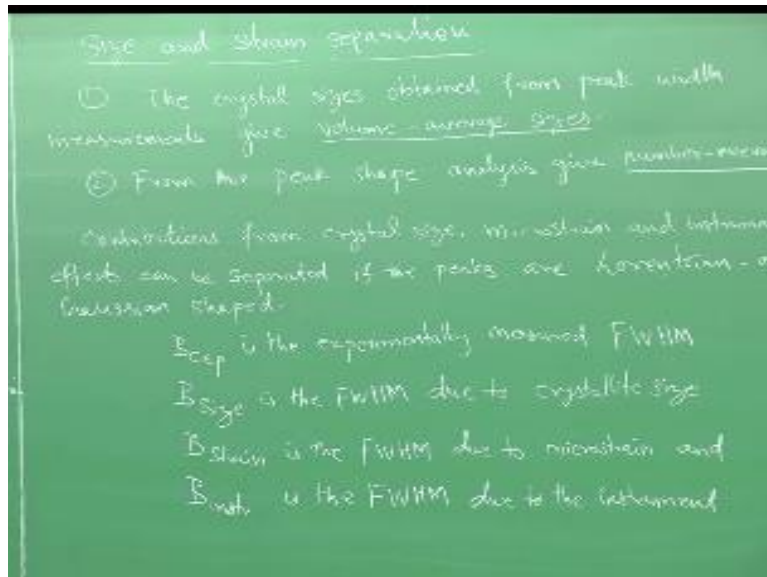 Size and strain separation
① The crystal sizes obtained from peak width
measurements give volume-average sizes.
② From the peak shape analysis give number-avera
Contributions from crystal size, microstrain and instrum
effect can be separated if the peaks are Lorentzian - o
Gaussian shaped.
B exp is the experimentally measured FWHM
B size is the FWHM due to crystallite size
B strain is the FWHM due to microstrain and
B inst. is the FWHM due to the instrument